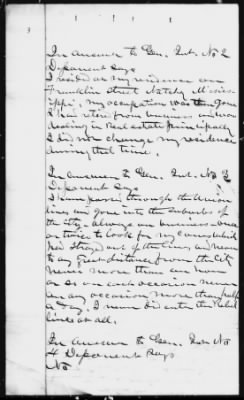 In answer to Gen. Int. No 2
Deponent says
I resided at my residence on
Franklin Street Natchez Missis-
ippi. my occupation was then gone
I had retired from business and was
dealing in Real estate principally
I did not change my residence
during that time.
In answer to Gen. Int. No 3
Deponent says
I have passed through the Union
lines and gone into the suburbs of
the city - always on business - once
or twice to look for my cow which
had strayed out of the lines and never
to any great distance from the City
never more than an hour
or so on each occasion never
on any occasion more than half
a day. I never did enter the Rebel
lines at all.
In answer to Gen. Int. No
4 Deponent Says
No